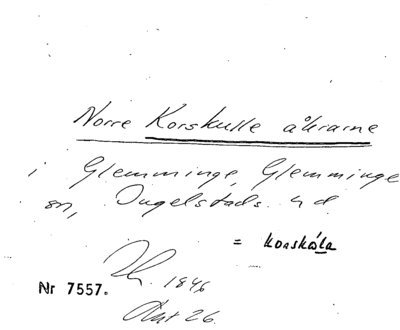 Norre Korskulle åkrarne
i Glemminge, Glemminge
sn, Ingelstads hd.
= Korskåla
Nr 7557.
1846
Akt 26.